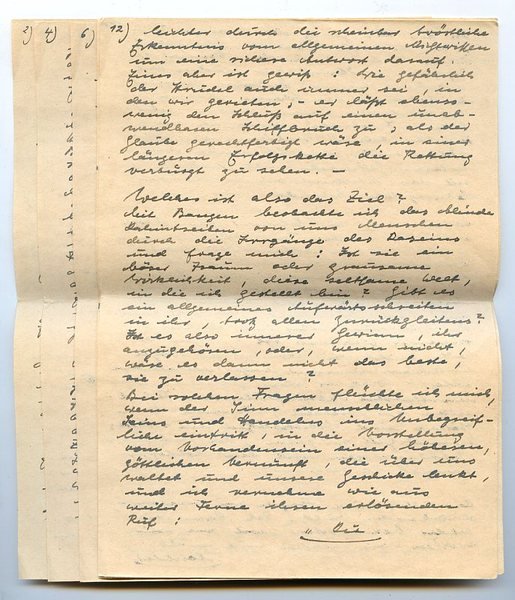 2) 4) 6) 12) leichter durch die scheinbar tröstliche
Erkenntnis vom allgemeinen Nichtwissen
um eine sichere Antwort darauf.
Eines aber ist gewiß: Wie gefährlich
der Strudel auch immer sei, in
den wir gerieten, – er läßt ebenso-
wenig den Schluß auf einen unab-
wendbaren Schiffbruch zu, als der
Glaube gerechtfertigt wäre, in einer
längeren Erfolgskette die Rettung
verbürgt zu sehen. –
Welches ist also das Ziel?
Mit Bangen beobachte ich das blinde
Dahintreiben von uns Menschen
durch die Irrgänge des Daseins
und frage mich: Ist sie ein
böser Traum oder grausame
Wirklichkeit, diese seltsame Welt,
in die ich gestellt bin? Gibt es
ein allgemeines Aufwärtsschreiten
in ihr, trotz allen Zurückgleitens?
Ist es also innerer Gewinn ihr
anzugehören, oder, wenn nicht,
wäre es dann nicht das beste,
sie zu verlassen?
Bei solchen Fragen flüchte ich mich,
wenn der Sinn menschlichen
Seins und Handelns ins Unbegreif-
liche eintritt, in die Vorstellung
vom Vorhandensein einer höheren,
göttlichen Vernunft, die über uns
waltet und unsere Geschicke lenkt,
und ich vernehme wie aus
weiter Ferne ihren erlösenden
Ruf: